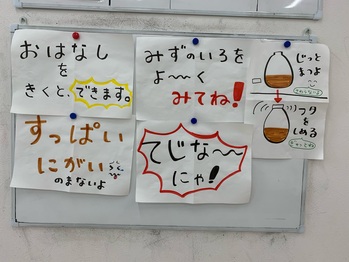 おはなし
を
きくと、できます。
みずのいろを
よ〜〜く
みてね!
じっと
まつよ
フタ
を
しめる
すっぱい
にがい
のまないよ
てじな〜〜
にゃ!